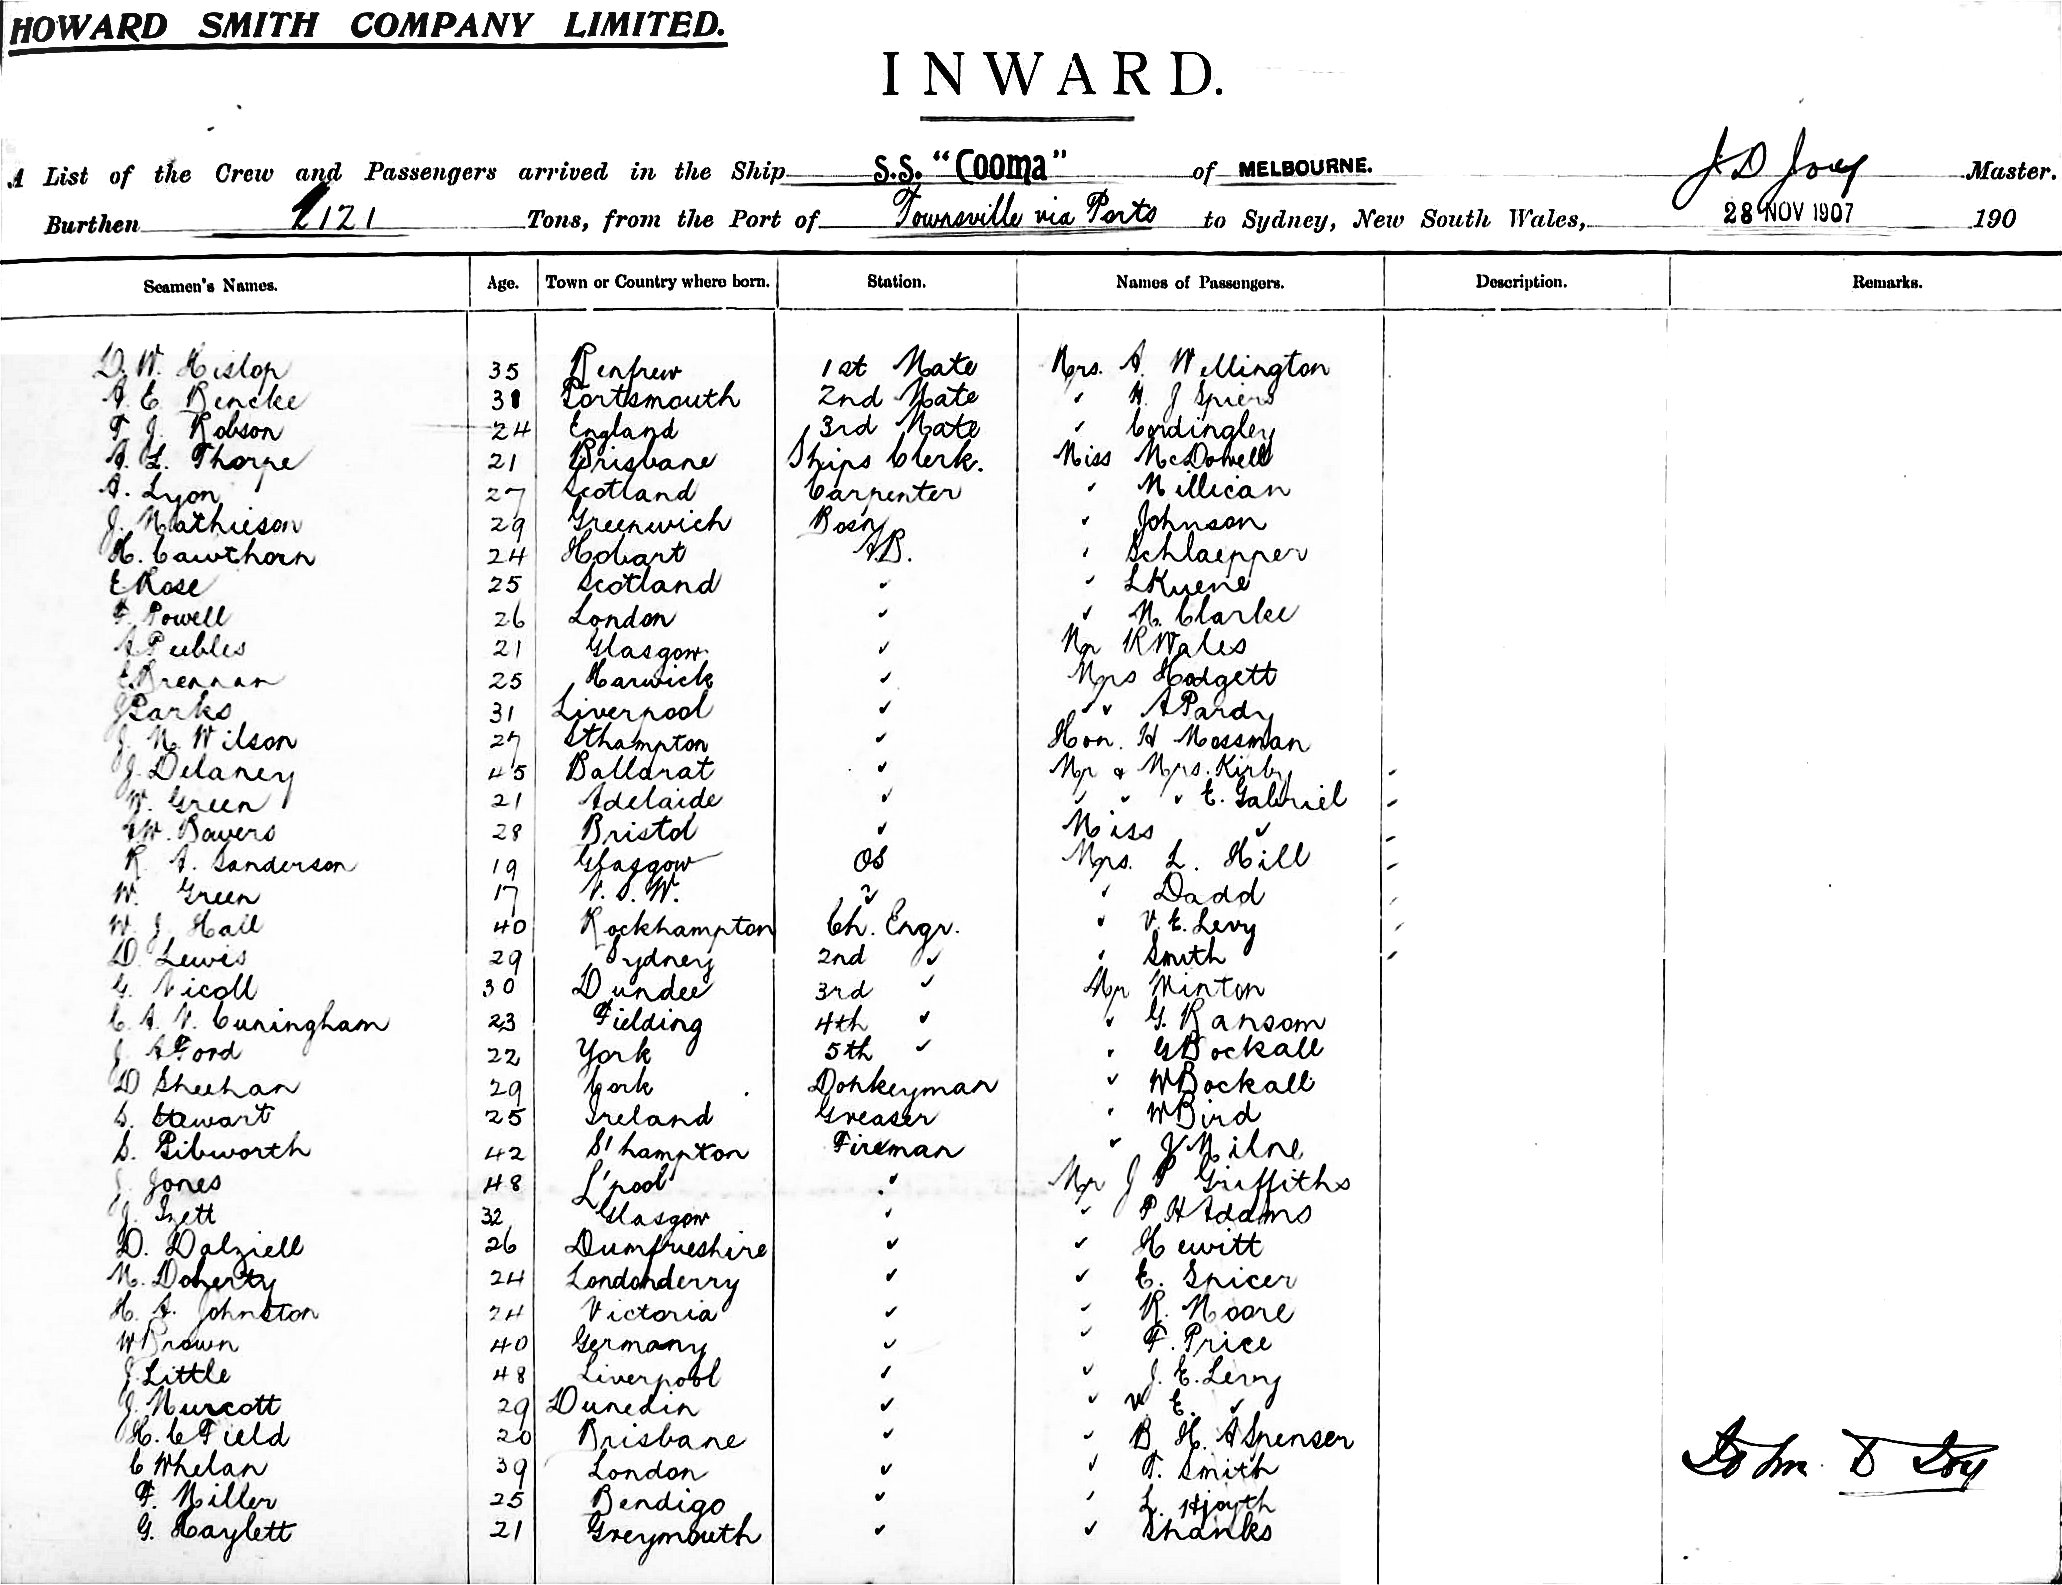 HOWARD SMITH COMPANY LIMITED.
INWARD.
A List of the Crew and Passengers arrived in the Ship S.S. "Cooma" of MELBOURNE. J D Joy Master.
Burthen 2121 Tons, from the Port of Townsville via Ports to Sydney, New South Wales, 28 NOV 1907 190
Seamen's Names. Age. Town or Country where born. Station. Names of Passengers. Description. Remarks.
D. W. Hislop 35 Renfrew 1st Mate Mrs. A. Wellington
A. E. Bencke 31 Portsmouth 2nd Mate " H. J Spiers
F. J. Robson 24 England 3rd Mate " Cordingley
A. L. Thorpe 21 Brisbane Ships Clerk. Miss McDowell
A. Lyon 27 Scotland Carpenter " Millican
J. Mathieson 29 Greenwich Bosn " Johnson
H. Cawthorn 24 Hobart AB. " Schlaepper
E Rose 25 Scotland " " L Kuene
F. Powell 26 London " " M. Clarke
A Peebles 21 Glasgow " Mr R Wales
E Brennan 25 Harwick " Mrs Hodgett
J Parks 31 Liverpool " " " A Pardy
J. M. Wilson 27 Sthampton " Hon. H Mossman
J. Delaney 45 Ballarat " Mr & Mrs. Kirby "
W. Green 21 Adelaide " " " " E. Gabriel "
W. Bowers 28 Bristol " Miss " "
R. A. Sanderson 19 Glasgow OS Mrs. L. Hill "
W. Green 17 N. S. W. " " Dadd "
W. J. Hall 40 Rockhampton Ch. Engr. " V. E. Levy "
D. Lewis 29 Sydney 2nd " " Smith "
G. Nicoll 30 Dundee 3rd " Mr Minton
C. A. N. Cuningham 23 Fielding 4th " " G. Ransom
J. A Ford 22 York 5th " " G Bockall
D Sheehan 29 Cork Donkeyman " W Bockall
S. Stewart 25 Ireland Greaser " W Bird
S. Pibworth 42 S'hampton Fireman " J Milne
J. Jones 48 L'pool " Mr J P Griffiths
J. Izett 32 Glasgow " " P H Adams
D. Dalziell 26 Dumfrieshire " " Hewitt
M. Doherty 24 Londonderry " " E. Spicer
H. A. Johnston 24 Victoria " " R. Moore
W Brown 40 Germany " " F. Price
J. Little 48 Liverpool " " J. E. Levy
J. Murcott 29 Dunedin " " V E. "
H. C Field 20 Brisbane " " B. H. A Spenser
C Whelan 39 London " " T. Smith
F. Miller 25 Bendigo " " L. Hjoyth
G. Haylett 21 Greymouth " " Shanks
John D Joy